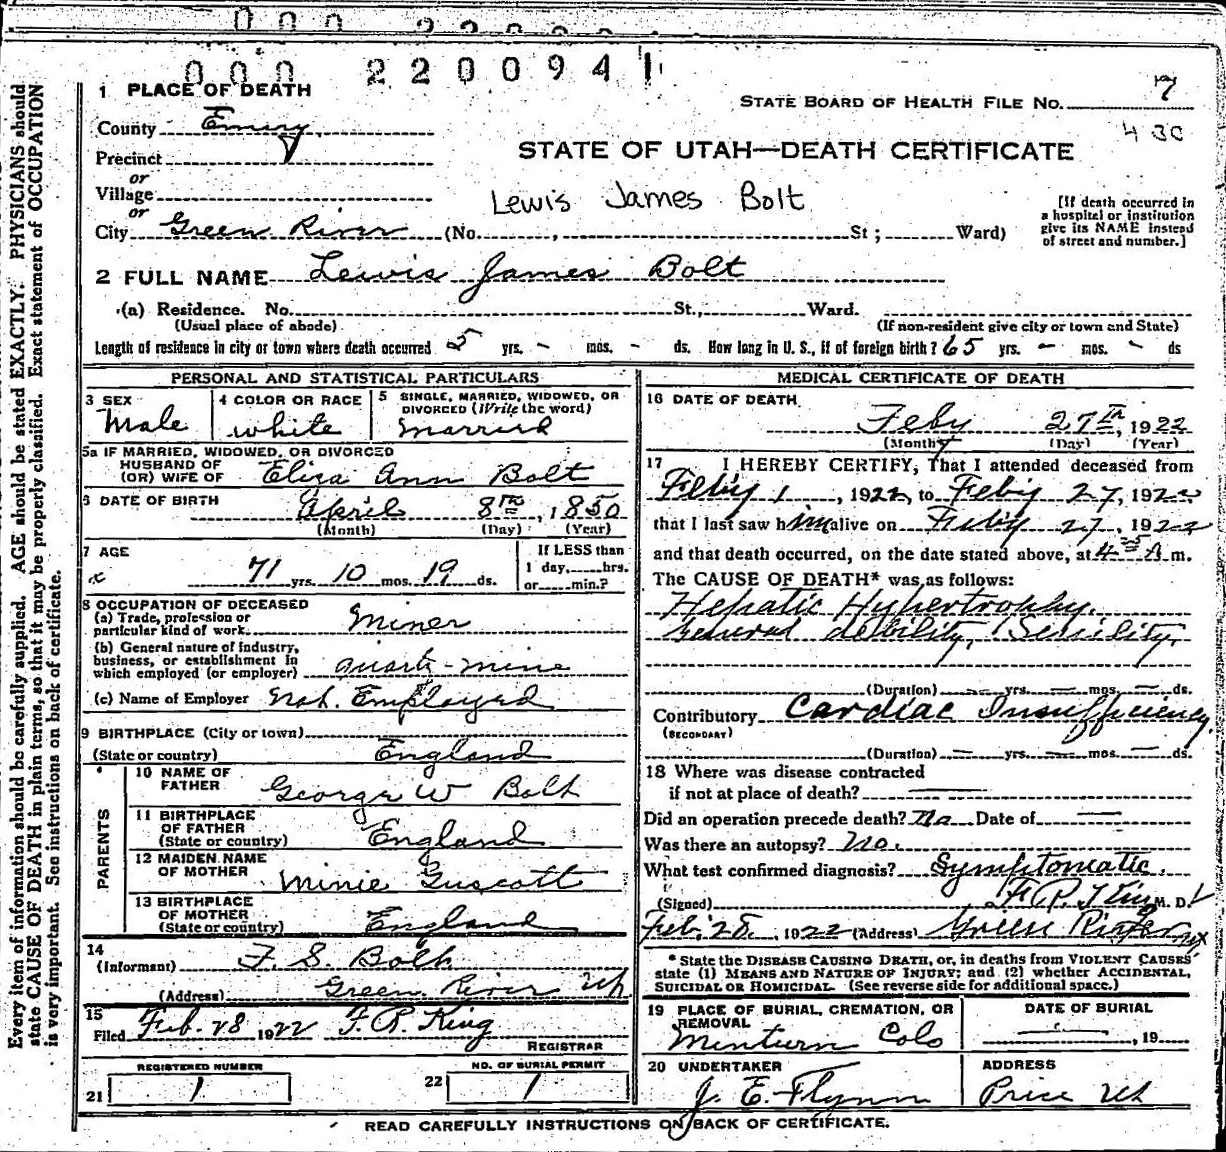 000 2200941
1 PLACE OF DEATH
STATE BOARD OF HEALTH FILE NO. 7
County Emery
430
Precinct
STATE OF UTAH—DEATH CERTIFICATE
or
Village
Lewis James Bolt
or
City Green River (No. , St; Ward)
[If death occurred in
a hospital or institution
give its NAME instead
of street and number.]
2 FULL NAME Lewis James Bolt
(a) Residence. No. St., Ward.
(Usual place of abode)
(If non-resident give city or town and State)
Length of residence in city or town where death occurred 5 yrs. - mos. - ds. How long in U. S., if of foreign birth? 65 yrs. - mos. - ds
PERSONAL AND STATISTICAL PARTICULARS
3 SEX
Male
4 COLOR OR RACE
white
5 SINGLE, MARRIED, WIDOWED, OR
DIVORCED (Write the word)
married
5a IF MARRIED, WIDOWED, OR DIVORCED
HUSBAND OF
(OR) WIFE OF Eliza Ann Bolt
6 DATE OF BIRTH
April 8th, 1850
(Month) (Day) (Year)
7 AGE
71 yrs. 10 mos. 19 ds.
If LESS than
1 day, hrs.
or min.?
8 OCCUPATION OF DECEASED
(a) Trade, profession or
particular kind of work. Miner
(b) General nature of industry,
business, or establishment in
which employed (or employer) quartz-mine
(c) Name of Employer Not. Employed
9 BIRTHPLACE (City or town)
(State or country) England
PARENTS
10 NAME OF
FATHER George W Bolt
11 BIRTHPLACE
OF FATHER
(State or country) England
12 MAIDEN NAME
OF MOTHER Minie Guscott
13 BIRTHPLACE
OF MOTHER
(State or country) England
14
(Informant) F. S. Bolt
(Address) Green River Ut
15
Filed Feb. 28 1922 F. R. King
REGISTRAR
REGISTERED NUMBER
21 1
NO. OF BURIAL PERMIT
22 1
MEDICAL CERTIFICATE OF DEATH
16 DATE OF DEATH
Feby 27th, 1922
(Month) (Day) (Year)
17 I HEREBY CERTIFY, That I attended deceased from
Feby 1, 1922, to Feby 27, 1922
that I last saw him alive on Feby 27, 1922
and that death occurred, on the date stated above, at 4 A m.
The CAUSE OF DEATH* was as follows:
Hepatic Hypertrophy.
General debility, Senility,
(Duration) — yrs. — mos. — ds.
Contributory Cardiac Insufficiency
(SECONDARY)
(Duration) — yrs. — mos. — ds.
18 Where was disease contracted
if not at place of death? —
Did an operation precede death? No Date of —
Was there an autopsy? No.
What test confirmed diagnosis? Symptomatic.
(Signed) F. R. King M. D.
Feb. 28, 1922 (Address) Green River
* State the DISEASE CAUSING DEATH, or, in deaths from VIOLENT CAUSES
state (1) MEANS AND NATURE OF INJURY; and (2) whether ACCIDENTAL,
SUICIDAL OR HOMICIDAL. (See reverse side for additional space.)
19 PLACE OF BURIAL, CREMATION, OR
REMOVAL
Minturn Colo
DATE OF BURIAL
, 19
20 UNDERTAKER
J. E. Flynn
ADDRESS
Price Ut
READ CAREFULLY INSTRUCTIONS ON BACK OF CERTIFICATE.
Every item of information should be carefully supplied. AGE should be stated EXACTLY. PHYSICIANS should
state CAUSE OF DEATH in plain terms, so that it may be properly classified. Exact statement of OCCUPATION
is very important. See instructions on back of certificate.